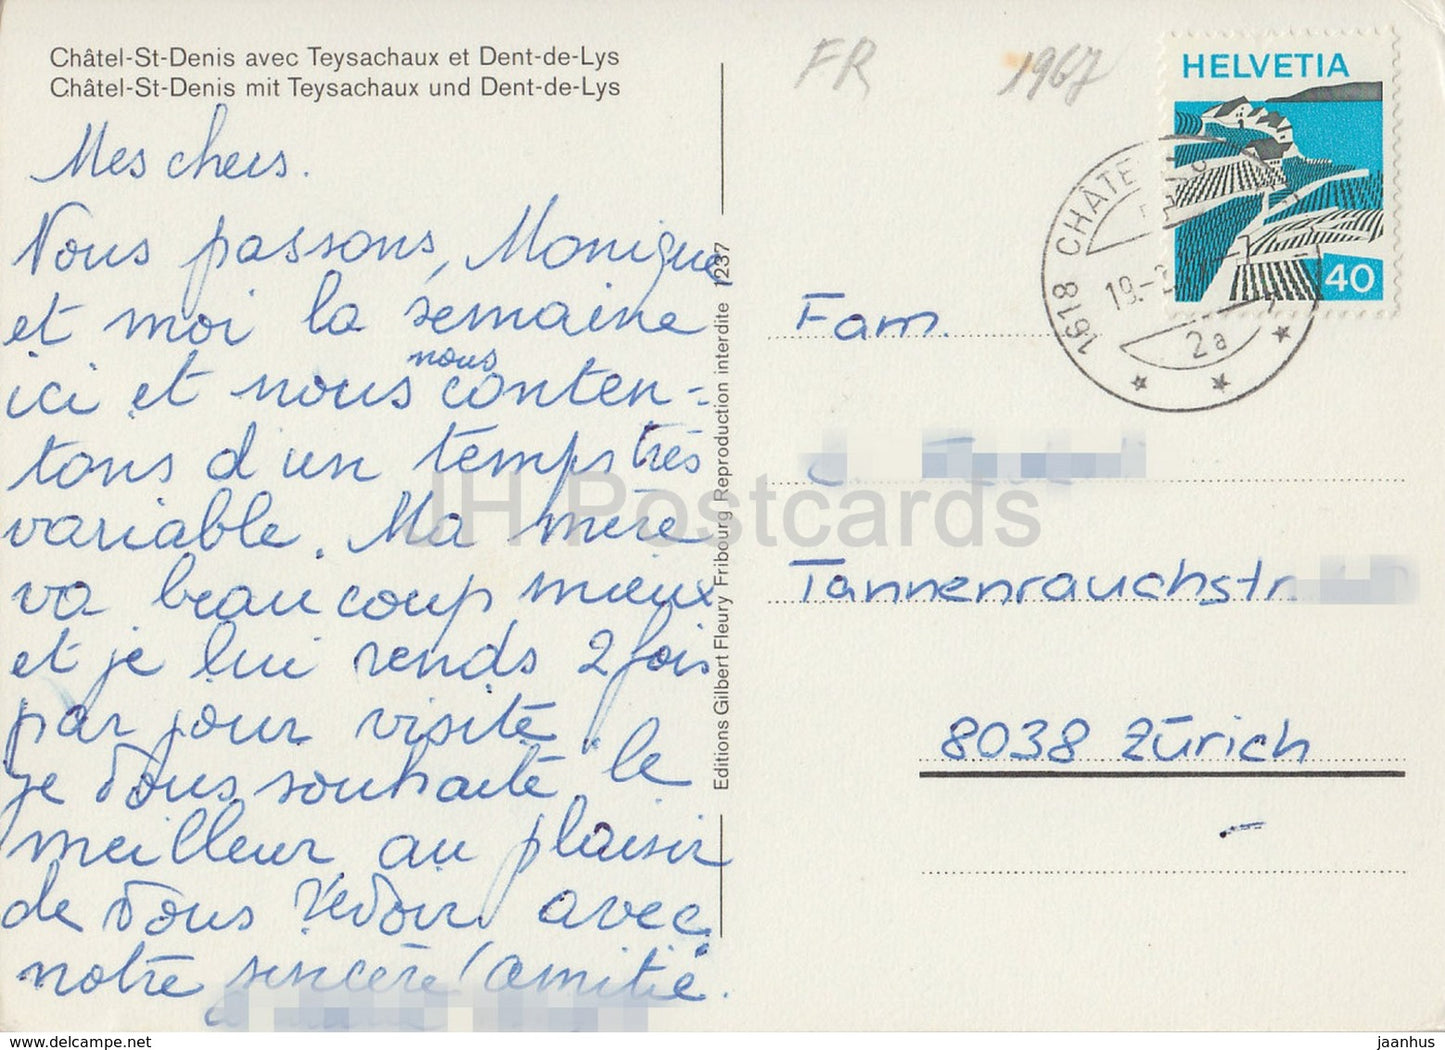 Châtel-St-Denis avec Teysachaux et Dent-de-Lys
Châtel-St-Denis mit Teysachaux und Dent-de-Lys
Mes chers.
Nous passons, Monique
et moi la semaine
ici et nous nous conten-
tons d'un temps très
variable. Ma mère
va beaucoup mieux
et je lui rends 2 fois
par jour visite
je vous souhaite le
meilleur au plaisir
de vous revoir avec
notre sincère amitié.
Editions Gilbert Fleury Fribourg Reproduction interdite 1237
FR 1967
HELVETIA
40
1618 CHÂTE
19.-
2a
Fam.
Tannenrauchstr.
8038 Zürich
JH Postcards
www.jaanhus.ecwid.com
jaanhus